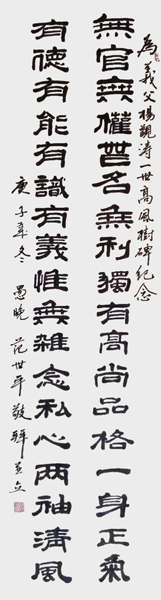 為義父楊觀濤一世高風樹碑紀念
無官無權無名無利獨有高尚品格一身正氣
有德有能有識有義惟無雜念私心两袖清風
庚子冬 愚晚 范世平敬並立